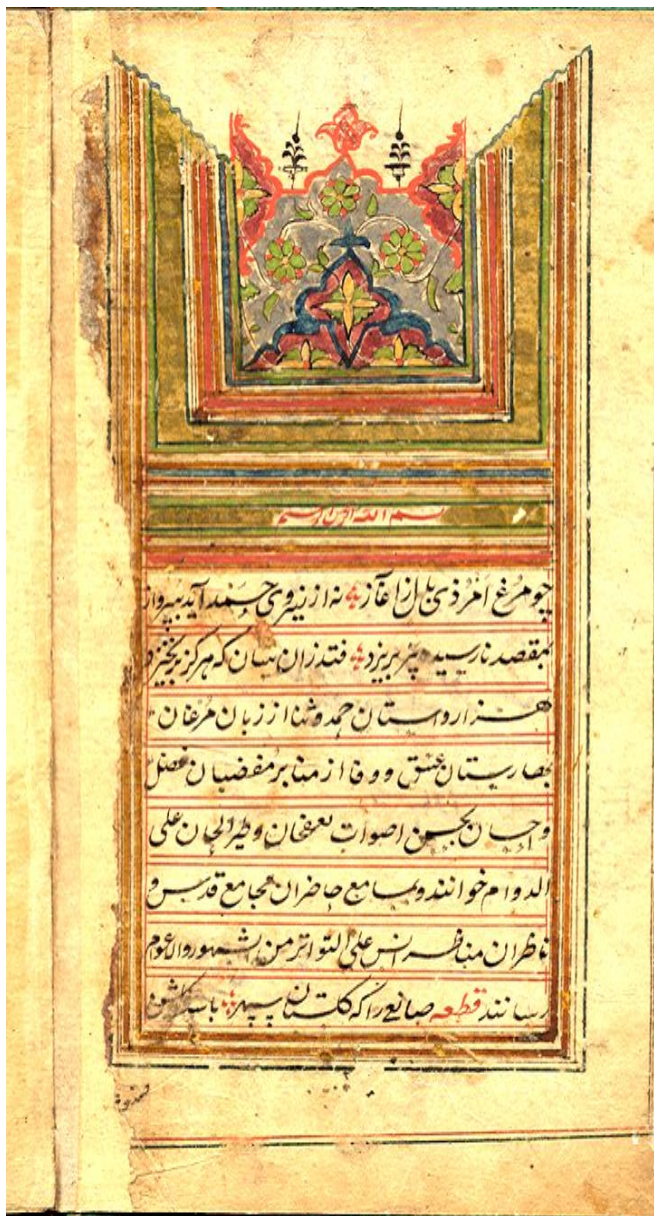 بسم الله الرحمن الرحیم
چو مرغ امر ذی بال از آغاز نه از نیروی حمد آید بپرواز
بمقصد نارسیده پر بریزد فتد زان سان که هرگز برنخیزد
هزار داستان حمد و ثنا از زبان مرغان
بهارستان عشق و وفا از منابر مفضیان فضل
و احسان بحسن اصوات و طیر الحان علی
الدوام خوانند و بمسامع حاضران مجامع قدس و
ناظران مناظر انس علی التواتر من الشهور والاعوام
رسانند قطعه صانعی را که گلستان سپهر